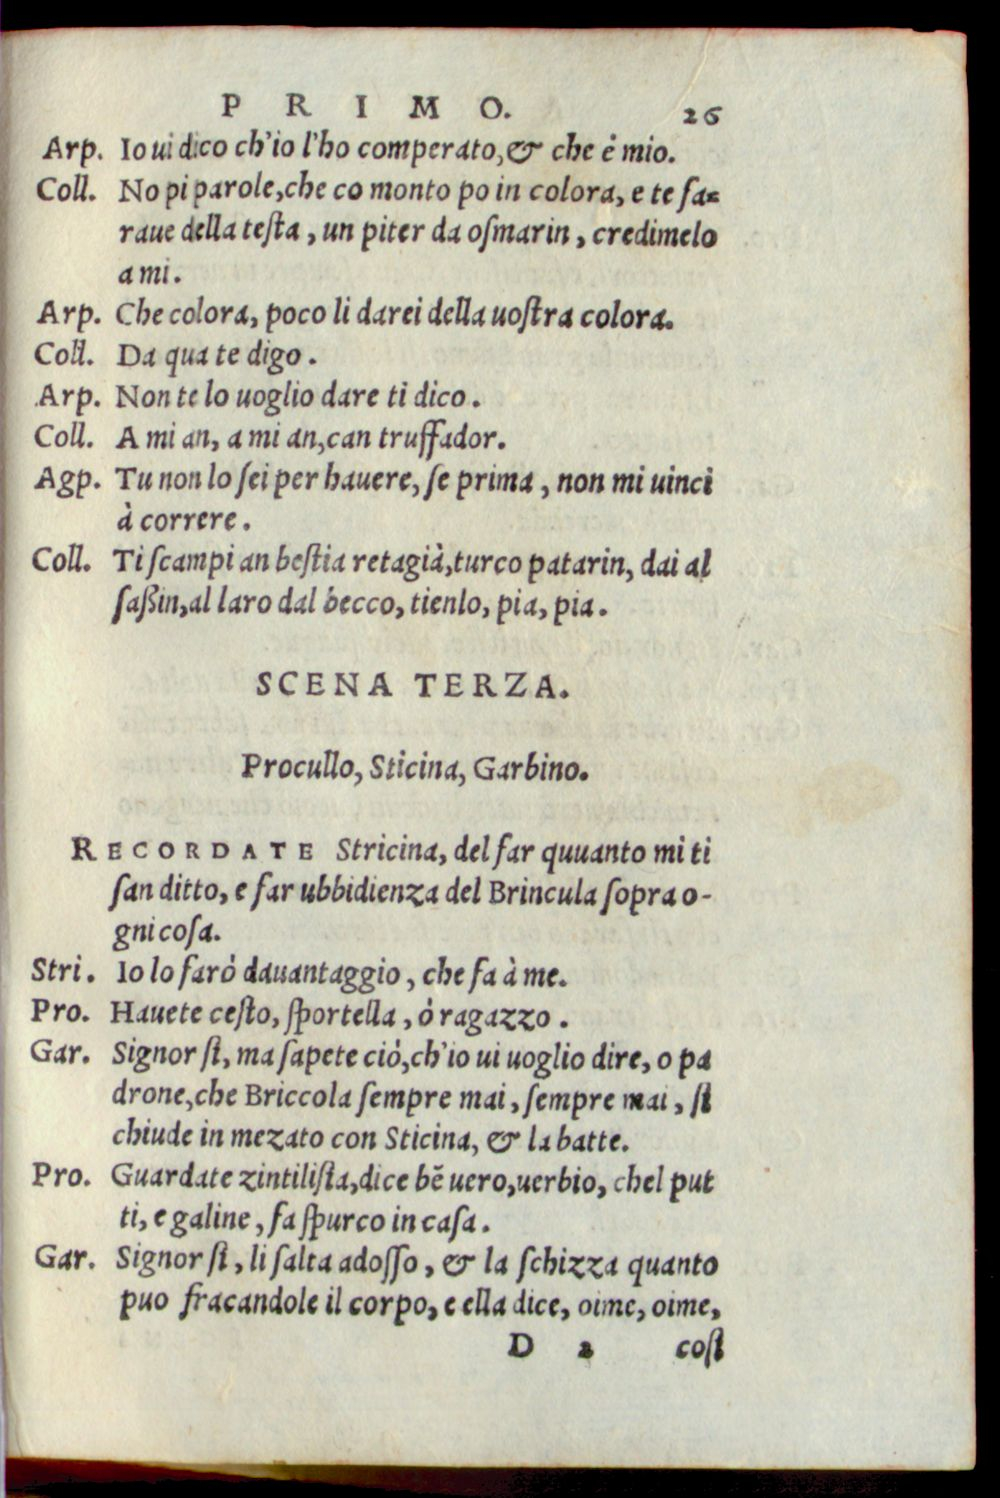 PRIMO. 26
Arp. Io ui dico ch'io l'ho comperato, & che è mio.
Coll. No pi parole, che co monto po in colora, e te fa-
raue della teſta, un piter da oſmarin, credimelo
a mi.
Arp. Che colora, poco li darei della uoſtra colora.
Coll. Da qua te digo.
Arp. Non te lo uoglio dare ti dico.
Coll. A mi an, a mi an, can truffador.
Agp. Tu non lo ſei per hauere, ſe prima, non mi uinci
à correre.
Coll. Ti ſcampi an beſtia retagià, turco patarin, dai al
ſaßin, al laro dal becco, tienlo, pia, pia.
SCENA TERZA.
Procullo, Sticina, Garbino.
RECORDATE Stricina, del far quuanto mi ti
ſan ditto, e far ubbidienza del Brincula ſopra o-
gni coſa.
Stri. Io lo farò dauantaggio, che fa à me.
Pro. Hauete ceſto, ſportella, ò ragazzo.
Gar. Signor ſi, ma ſapete ciò, ch'io ui uoglio dire, o pa
drone, che Briccola ſempre mai, ſempre mai, ſi
chiude in mezato con Sticina, & la batte.
Pro. Guardate zintiliſta, dice bẽ uero, uerbio, chel put
ti, e galine, fa ſpurco in caſa.
Gar. Signor ſi, li ſalta adoſſo, & la ſchizza quanto
puo fracandole il corpo, e ella dice, oime, oime,
D 2 coſi